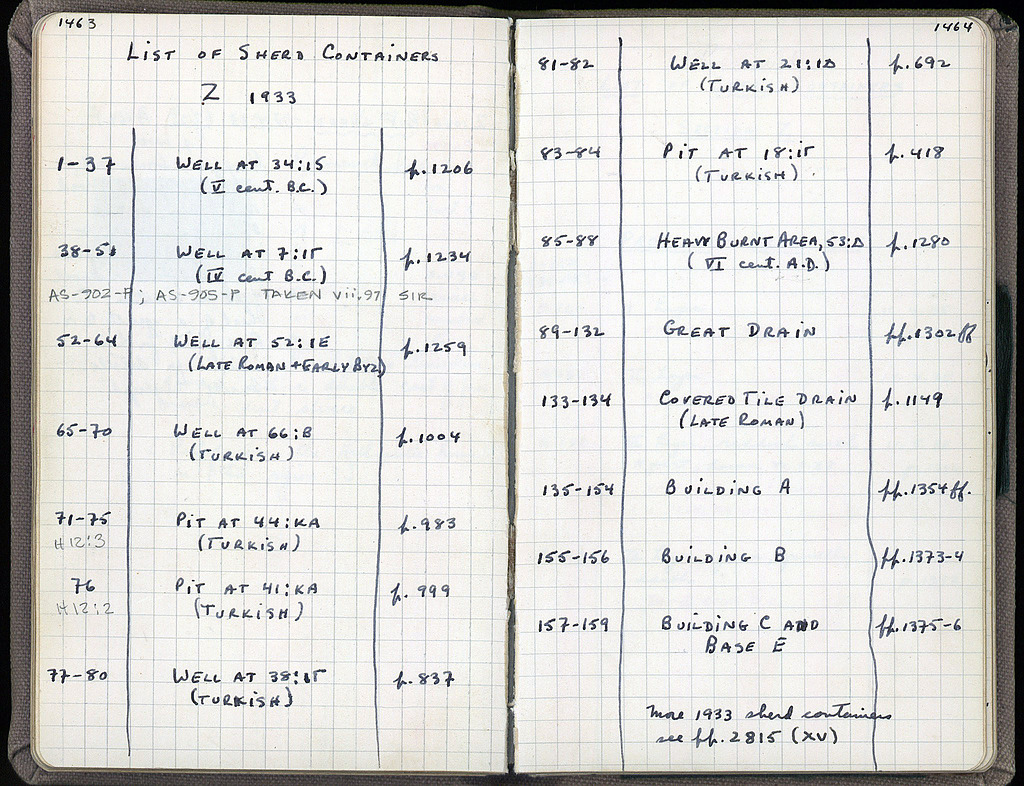 1463
List of Sherd Containers
Z 1933
1-37 Well at 34:IS p.1206
(V cent. B.C.)
38-51 Well at 7:IT p.1234
(IV cent B.C.)
AS-902-P; AS-905-P TAKEN vii.97 SIR
52-64 Well at 52:IE p.1259
(Late Roman + Early Byz)
65-70 Well at 66:B p.1004
(Turkish)
71-75 Pit at 44:KA p.983
H12:3 (Turkish)
76 Pit at 41:KA p. 999
H12:2 (Turkish)
77-80 Well at 38:IT p.837
(Turkish)
1464
81-82 Well at 21:IΔ p.692
(Turkish)
83-84 Pit at 18:IT p.418
(Turkish)
85-88 Heavy Burnt Area, 53:Δ p.1280
(VI cent. A.D.)
89-132 Great Drain pp.1302ff
133-134 Covered Tile Drain p.1149
(Late Roman)
135-154 Building A pp.1354ff.
155-156 Building B pp.1373-4
157-159 Building C and pp.1375-6
Base E
More 1933 sherd containers
see pp.2815 (XV)